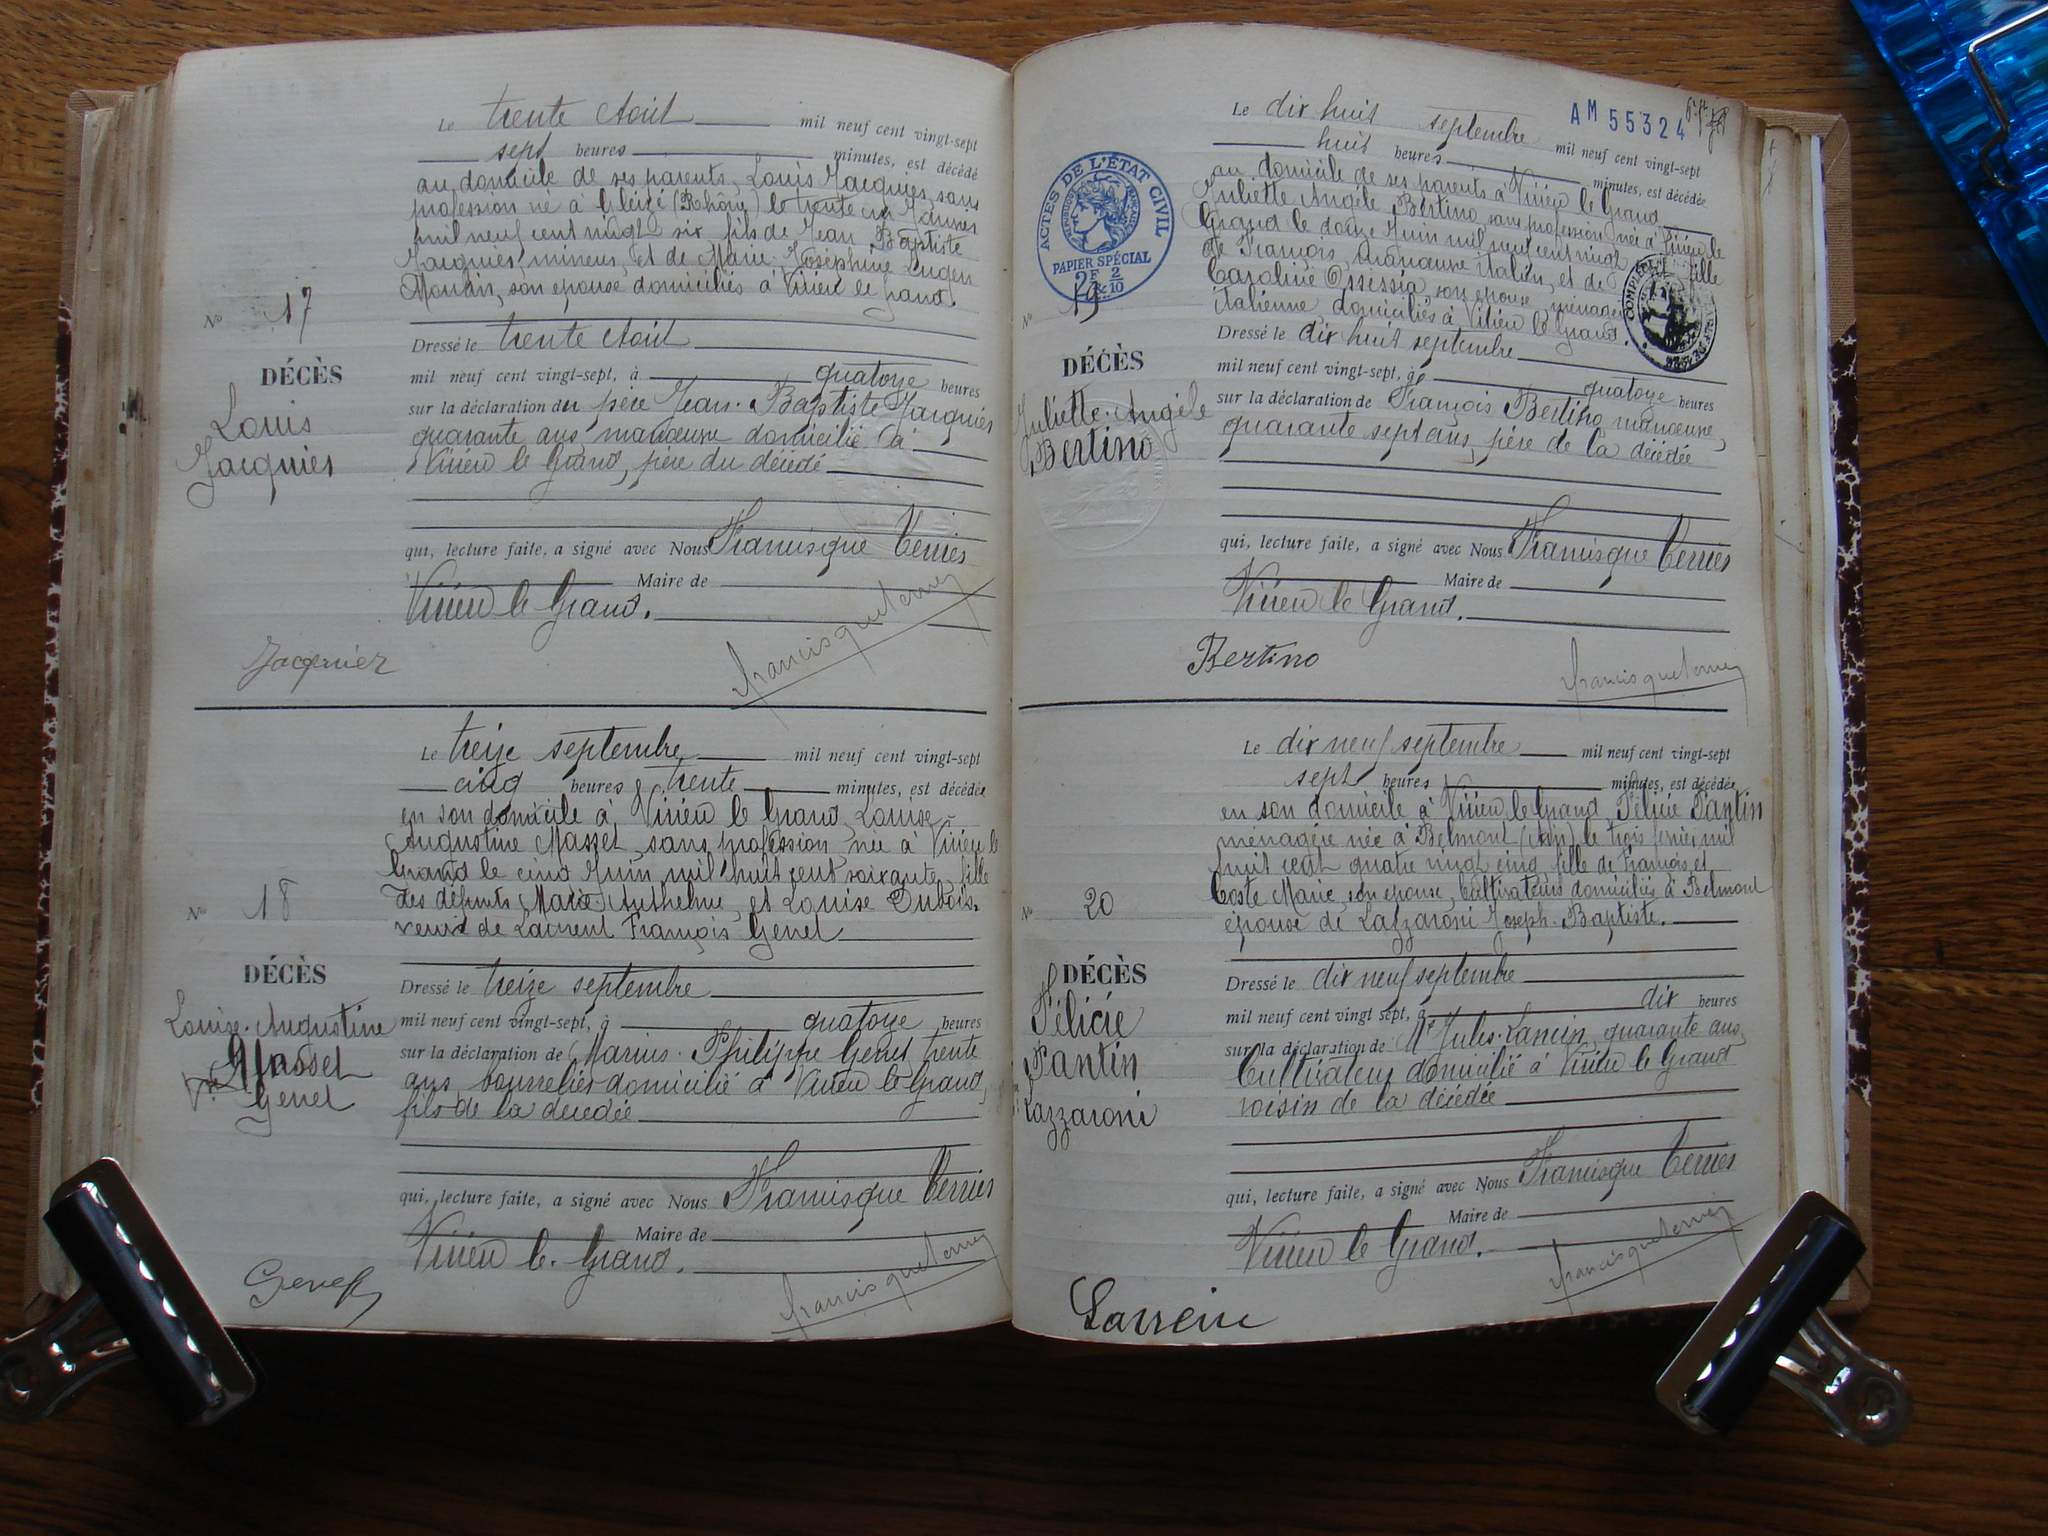 Le trente Août mil neuf cent vingt-sept
sept heures minutes, est décédé
au domicile de ses parents, Louis Jacquier, sans
profession né à Gleizé (Rhône) le trente un Janvier
mil neuf cent vingt six fils de Jean Baptiste
Jacquier, mineur, et de Marie Joséphine
son épouse domiciliés à Virieu le grand.
No 17
DÉCÈS
Louis
Jacquier
Dressé le trente Août
mil neuf cent vingt-sept, à quatorze heures
sur la déclaration du père Jean-Baptiste Jacquier
quarante ans, manœuvre domicilié à
Virieu le Grand, père du décédé
qui, lecture faite, a signé avec Nous Francisque Terrier
Maire de
Virieu le Grand.
Jacquier
francisque terrier
Le treize septembre mil neuf cent vingt-sept
cinq heures trente minutes, est décédée
en son domicile à Virieu le Grand, Louise
Augustine Masset, sans profession, née à Virieu le
Grand le cinq Juin, mil huit cent soixante, fille
des défunts Marie Anthelme, et Louise Dubois,
veuve de Laurent François Genet
No 18
DÉCÈS
Louise-Augustine
Masset
Vve Genet
Dressé le treize septembre
mil neuf cent vingt-sept, à quatorze heures
sur la déclaration de Marius-Philippe Genet, trente
ans, bourrelier domicilié à Virieu le Grand,
fils de la décédée
qui, lecture faite, a signé avec Nous Francisque Terrier
Maire de
Virieu le Grand.
Genet
francisque terrier
AM 55324
Le dix huit septembre mil neuf cent vingt-sept
huit heures minutes, est décédée
au domicile de ses parents à Virieu le Grand
Juliette Angèle Bertino, sans profession, née à Virieu le
Grand le douze Juin mil neuf cent vingt fille
de François, manœuvre italien, et de
Caroline son épouse, ménagère
italienne, domiciliés à Virieu le Grand.
ACTES DE L'ÉTAT CIVIL
RÉPUBLIQUE FRANÇAISE
PAPIER SPÉCIAL
2F 2/10
No 19
DÉCÈS
Juliette-Angèle
Bertino
Dressé le dix huit septembre
mil neuf cent vingt-sept, à quatorze heures
sur la déclaration de François Bertino, manœuvre,
quarante sept ans, père de la décédée
qui, lecture faite, a signé avec Nous Francisque Terrier
Maire de
Virieu le Grand.
Bertino
francisque terrier
Le dix neuf septembre mil neuf cent vingt-sept
sept heures minutes, est décédée
en son domicile à Virieu le Grand, Félicie Pantin
ménagère née à Belmont (Ain) le trois février mil
huit cent quatre vingt cinq fille de François et
Coste Marie, son épouse, Cultivateurs domiciliés à Belmont
épouse de Lazzaroni Joseph-Baptiste.
No 20
DÉCÈS
Félicie
Pantin
Lazzaroni
Dressé le dix neuf septembre
mil neuf cent vingt sept, à dix heures
sur la déclaration de Mr Jules quarante ans,
Cultivateur domicilié à Virieu le Grand
voisin de la décédée
qui, lecture faite, a signé avec Nous Francisque Terrier
Maire de
Virieu le Grand.
francisque terrier